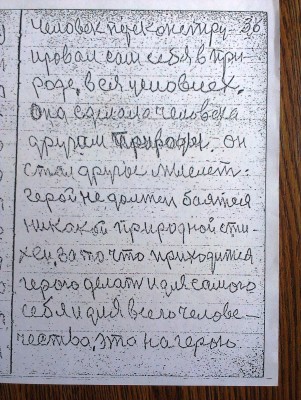 человек переконстру- 36
ировал сам себя в при
роде, в ея условиех.
Она сделала человека
другам природы, он
стал другие
герой не должен боятся
никакой природной сти-
хеи, за то что приходится
герою делать и для самого
себя и для всего челове-
чества, это на герою